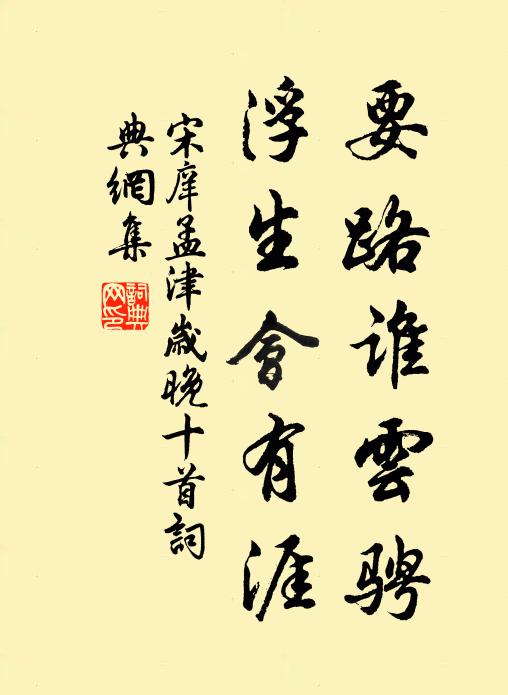 要路誰雲騁
浮生會有涯
宋庠孟津歲晚十首詞
典網集
詞典網印